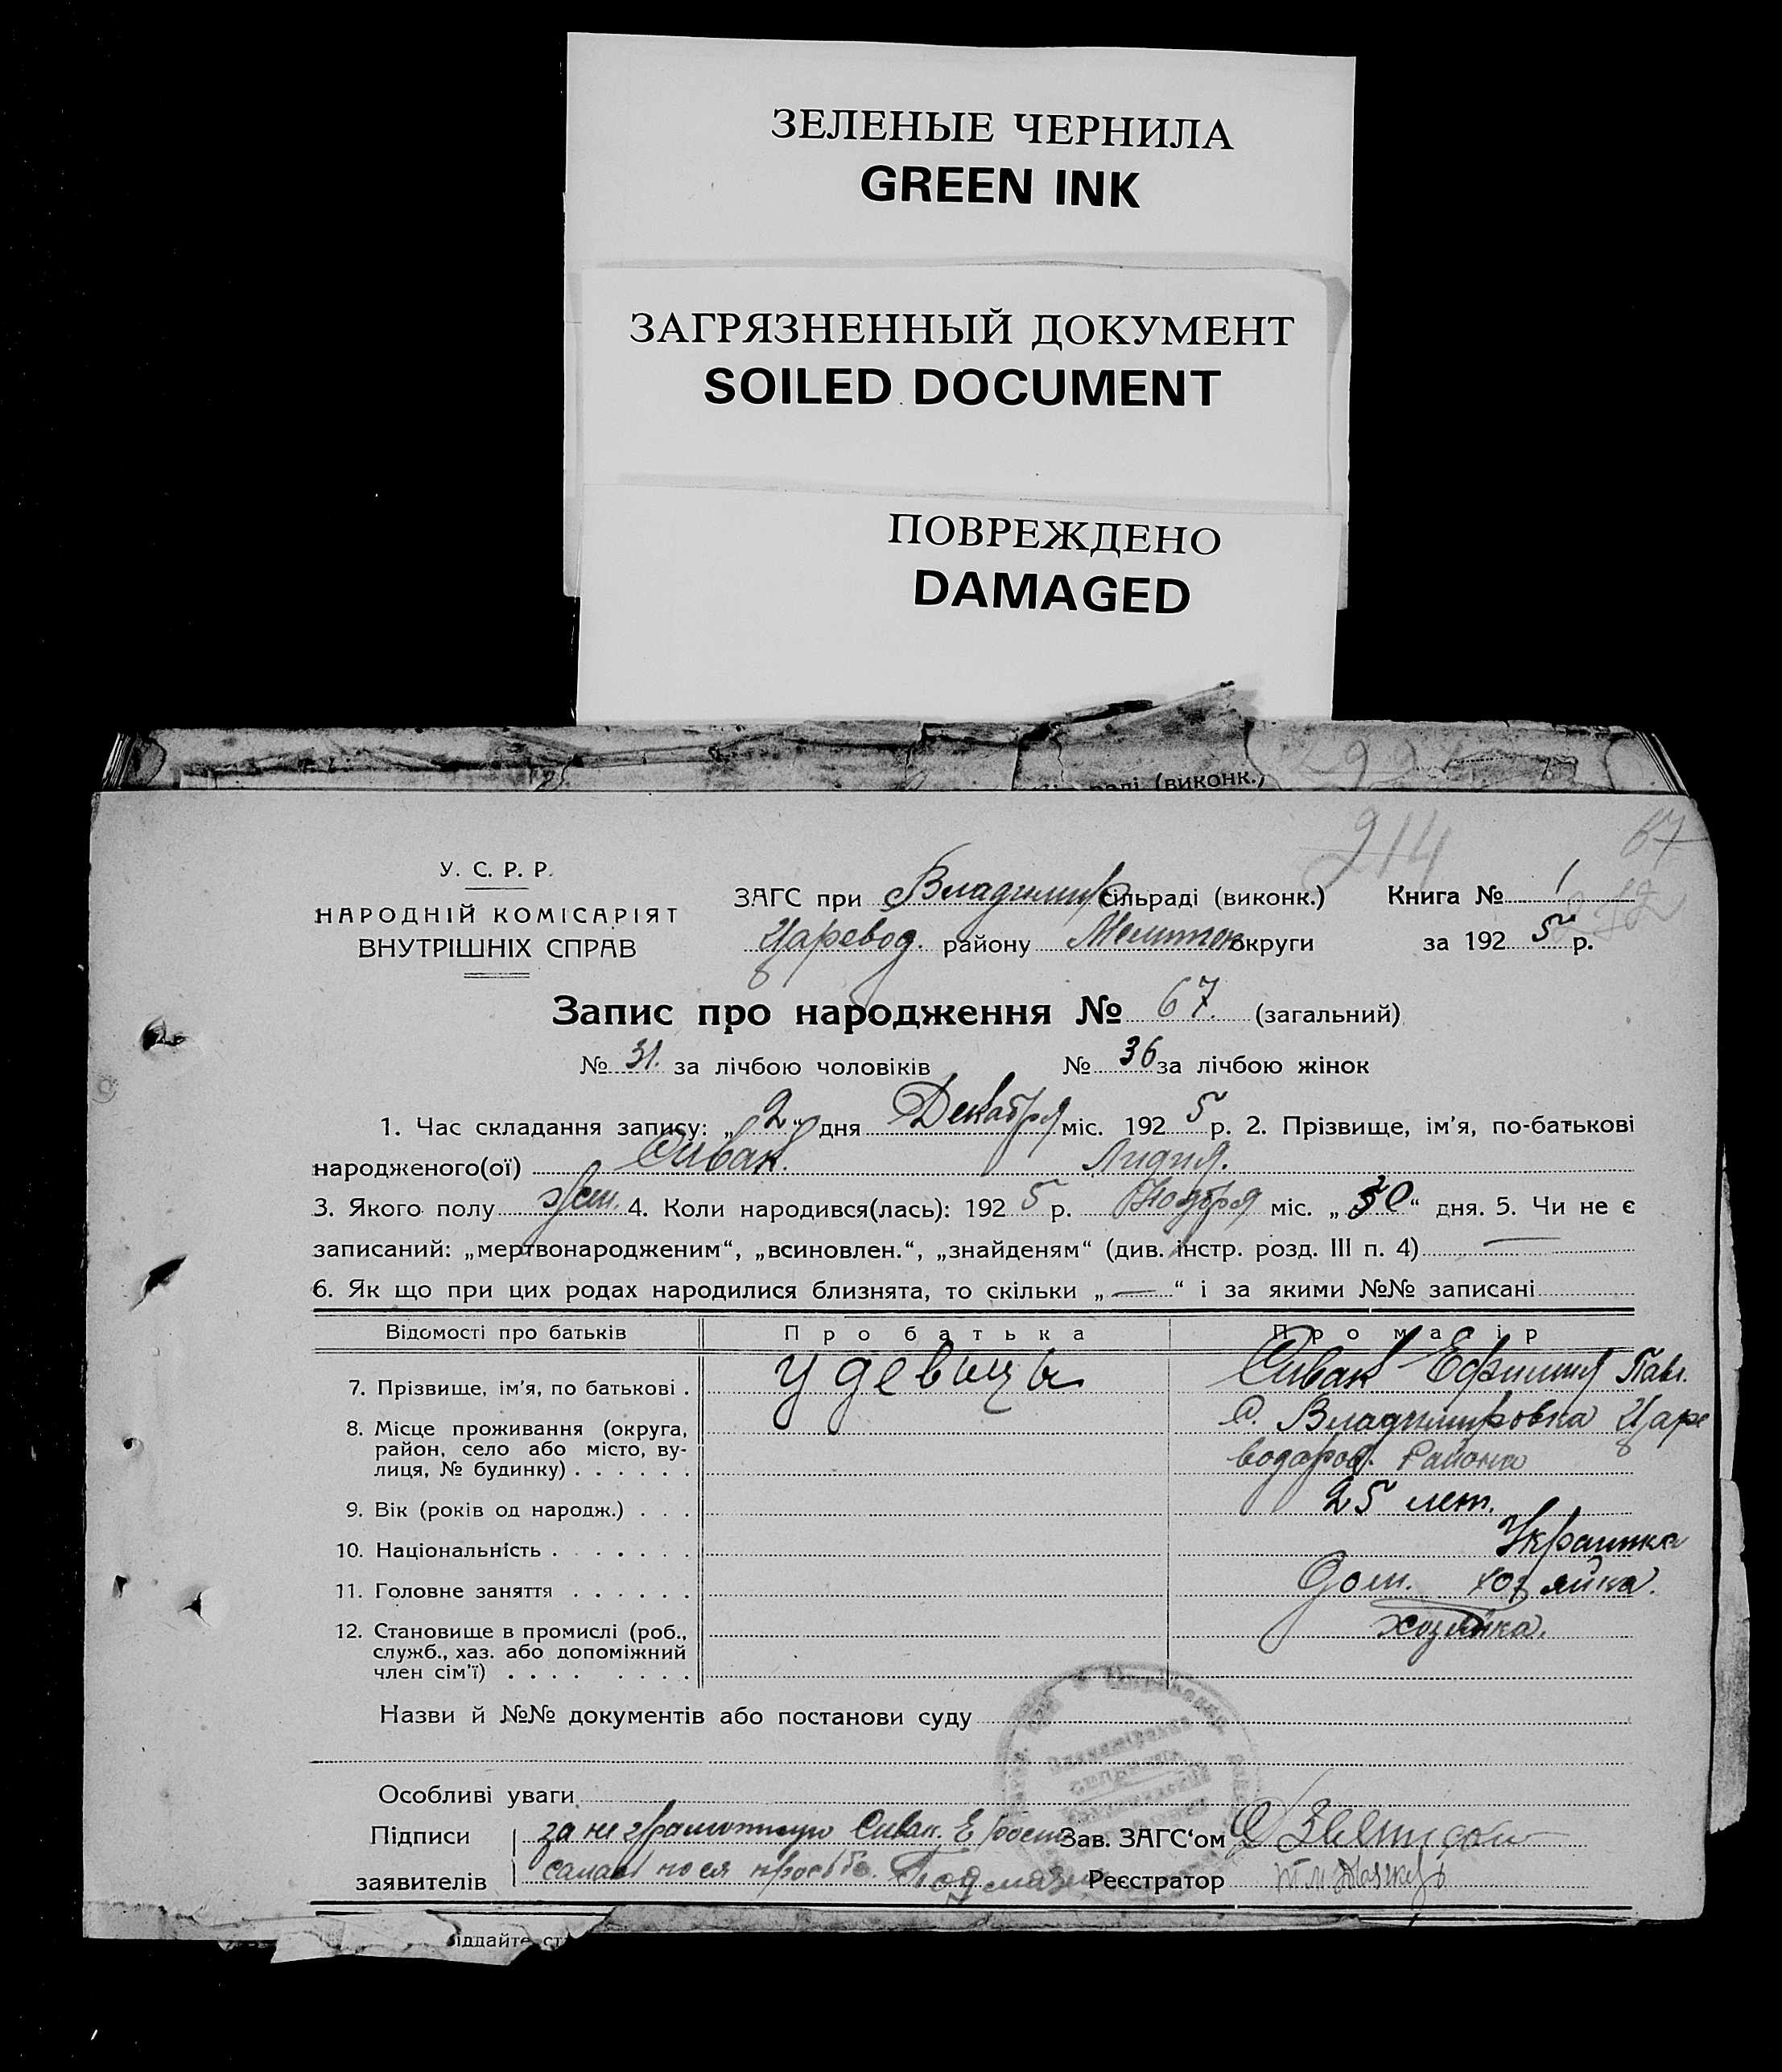 ЗЕЛЕНЫЕ ЧЕРНИЛА
GREEN INK
ЗАГРЯЗНЕННЫЙ ДОКУМЕНТ
SOILED DOCUMENT
ПОВРЕЖДЕНО
DAMAGED
(виконк.)
214 67
У. С. Р. Р.
НАРОДНІЙ КОМІСАРІЯТ
ВНУТРІШНІХ СПРАВ
ЗАГС при Владимир сільраді (виконк.) Книга № 1
Царевод. району Мелитоп округи за 1925 р.
Запис про народження № 67. (загальний)
№ 31. за лічбою чоловіків № 36 за лічбою жінок
1. Час складання запису: „2“ дня Декабря міс. 1925 р. 2. Прізвище, ім’я, по-батькові
народженого(ої) Сивак. Лидия.
3. Якого полу жен. 4. Коли народився(лась): 1925 р. Ноября міс. „30“ дня. 5. Чи не є
записаний: „мертвонародженим“, „всиновлен.“, „знайденям“ (див. інстр. розд. III п. 4) —
6. Як що при цих родах народилися близнята, то скільки „—“ і за якими №№ записані
Відомості про батьків Про батька Про матір
7. Прізвище, ім’я, по батькові . У девицы Сивак Ефимия Павл.
8. Місце проживання (округа, район, село або місто, вулиця, № будинку) . . . . . . с. Владимировка Царе
водаров. Района
9. Вік (років од народж.) . . . 25 лет.
10. Національність . . . . . . Украинка
11. Головне заняття . . . . . . Дом. хозяйка.
12. Становище в промислі (роб., служб., хаз. або допоміжний член сім’ї) . . . . . . . . хозяйка.
Назви й №№ документів або постанови суду
Особливі уваги
Підписи за не грамотную Сивак. Е Зав. ЗАГС‘ом
заявителів по ея просьбе. Реєстратор
іддайте ст